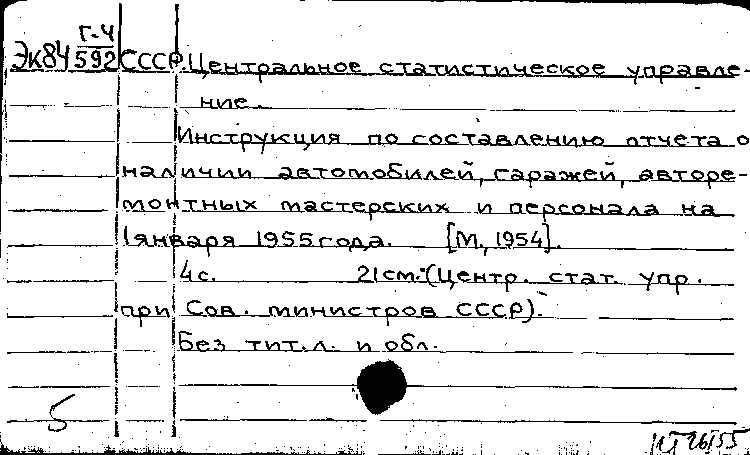 Г-4
Эк84 592 СССР. Центральное статистическое управле-
ние.
Инструкция по составлению отчета о
наличии автомобилей, гаражей, авторе-
монтных мастерских и персонала на
1 января 1955 года. [М., 1954].
4 с. 21 см. (Центр. стат. упр.
при Сов. министров СССР).
Без тит. л. и обл.
5
26/55